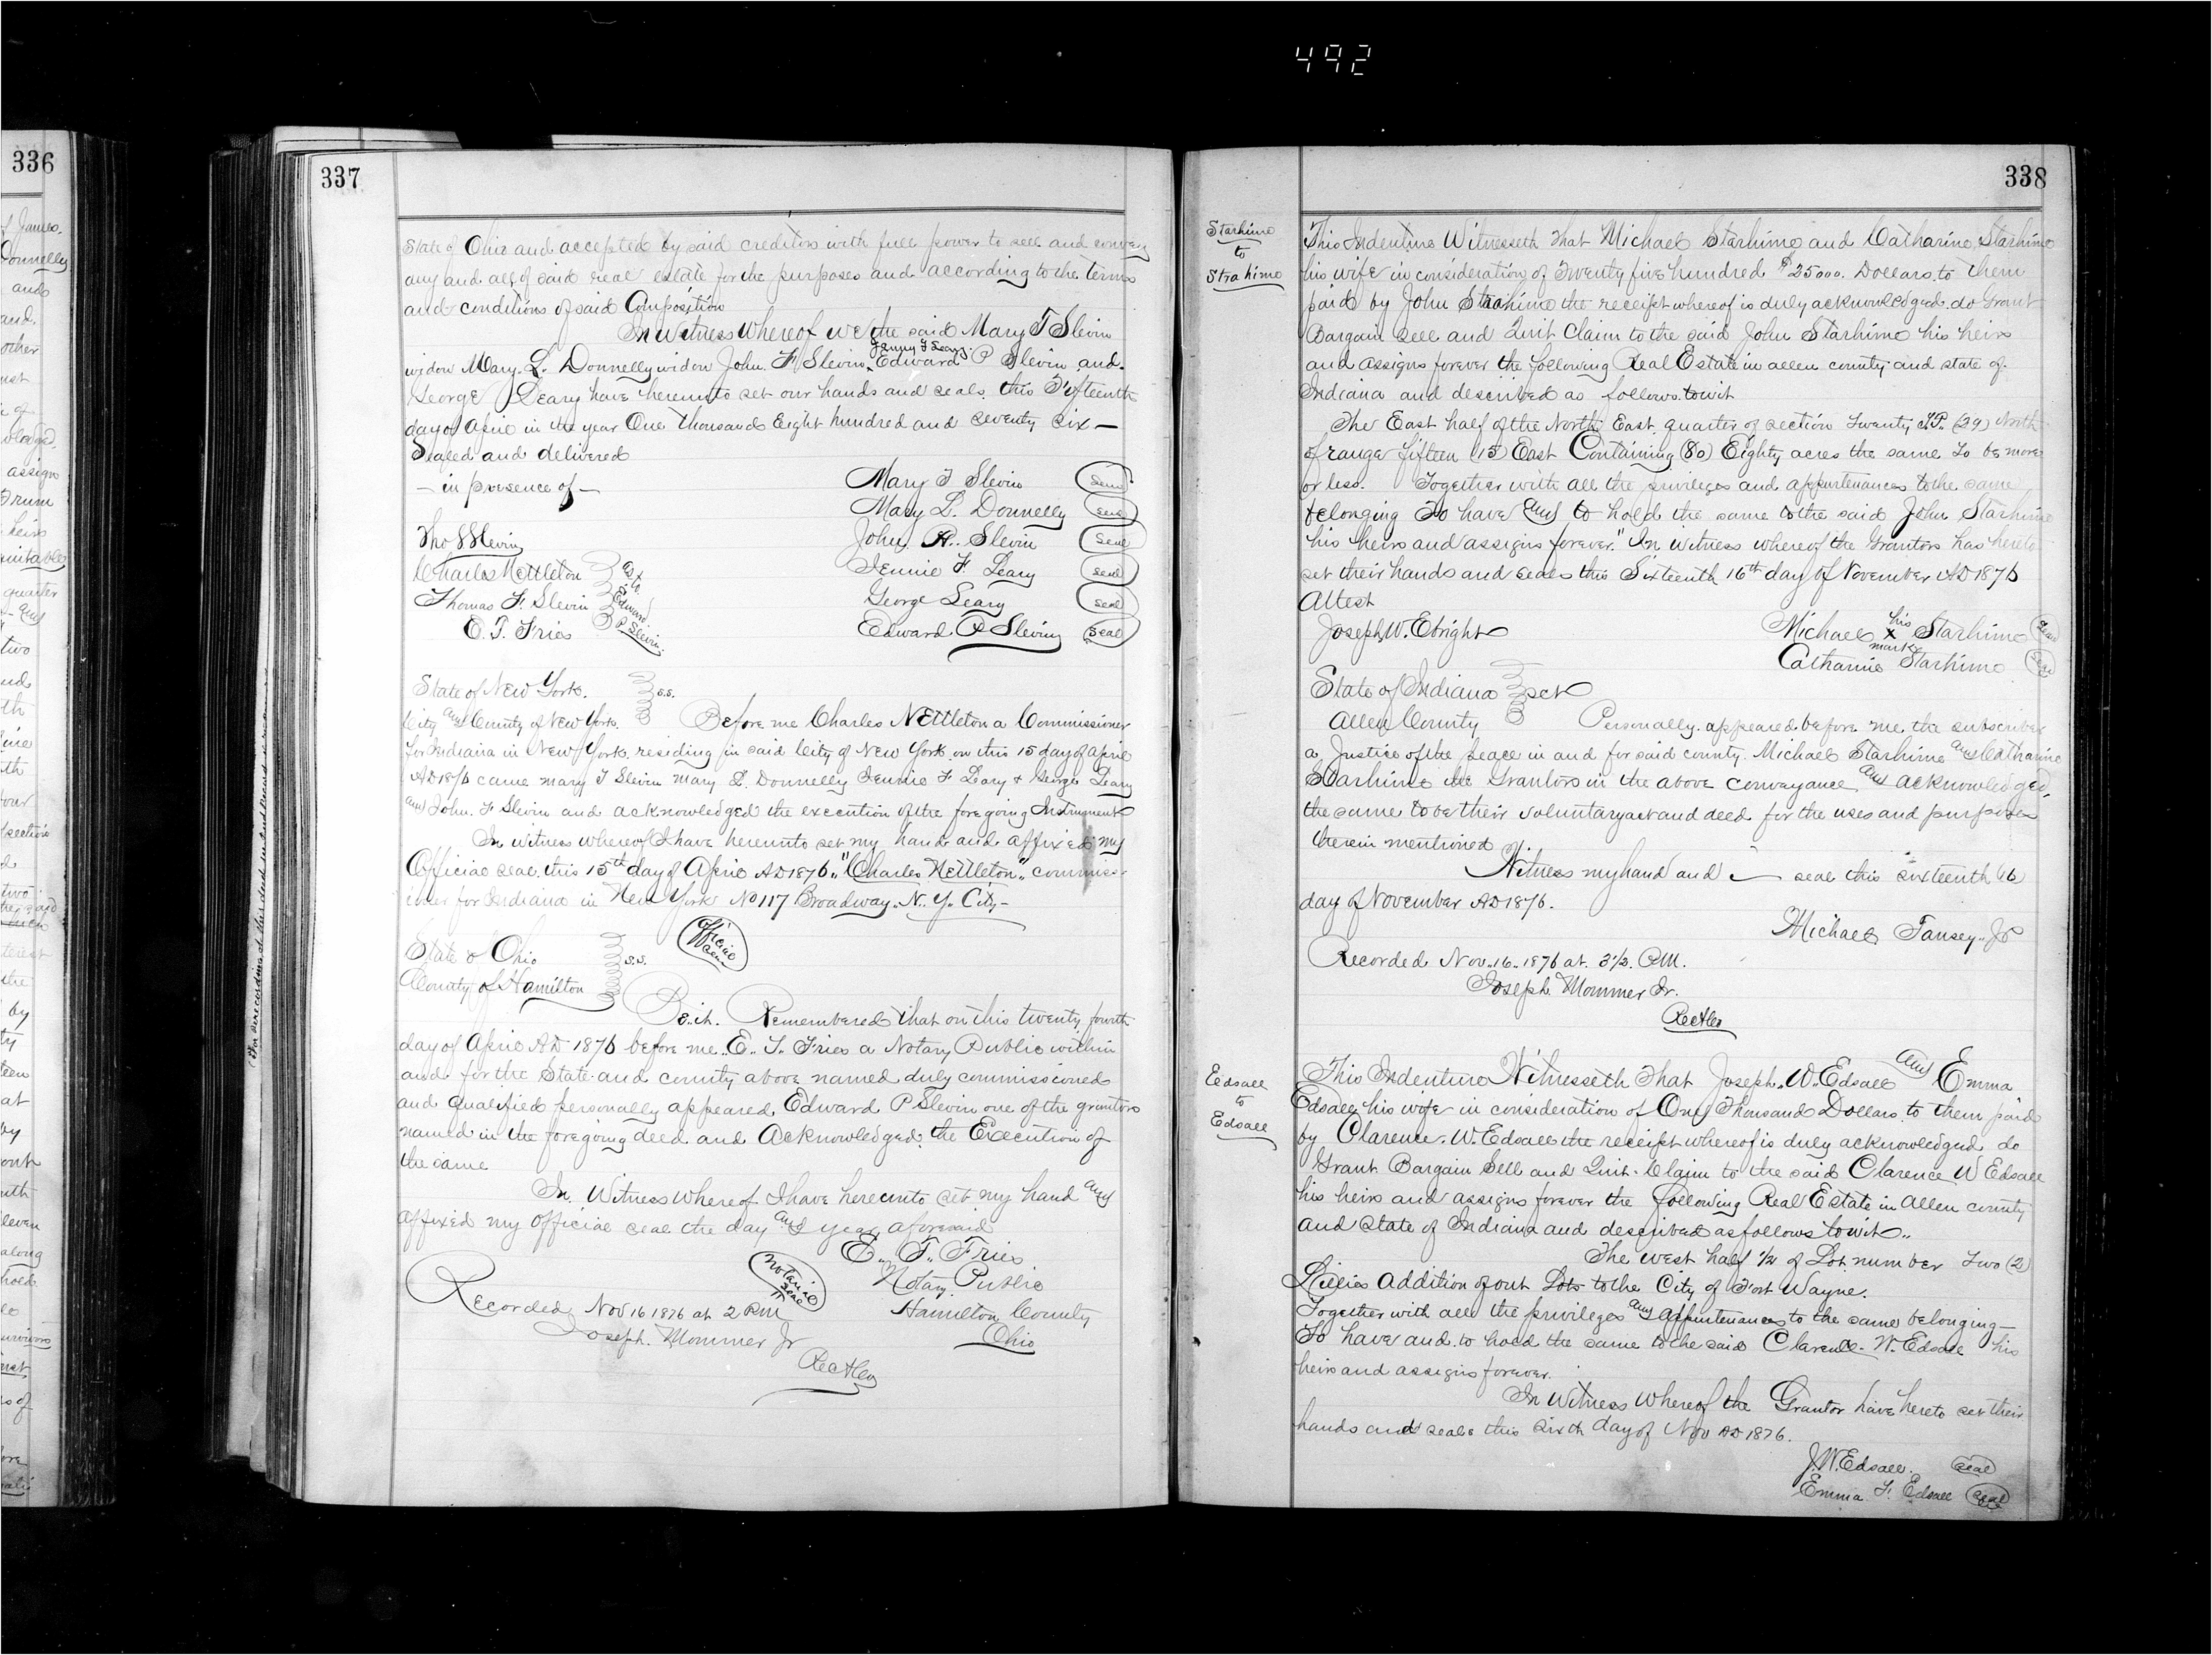 492
336
f James.
Donnelly
and
and.
other
quarter
two
ine
th
four
section
d
two
terest
the
by
ty
teen
at
by
uth
leven
along
hold
survivors
s of
337
State of Ohio and accepted by said creditors with full power to sell and convey
any and all of said real estate for the purposes and according to the terms
and conditions of said Composition
In Witness Whereof we the said Mary T Slevin
Jenny F Leary.
widow Mary. L. Donnelly widow John. F. Slevin, Edward P Slevin and.
George Leary have hereunto set our hands and seals this Fifteenth
day of April in the year One Thousand Eight hundred and Seventy Six —
Sealed and delivered
— in presence of —
Mary T Slevin seal
Mary L. Donnelly seal
Tho S Slevin John F. Slevin Seal
Charles Nettleton as to Jennie F Leary seal
Thomas F. Slevin Edward George Leary seal
E. T. Fries P Slevin. Edward P Slevin seal
State of New York. s.s.
City and County of New York. Before me Charles Nettleton a Commissioner
for Indiana in New York residing in said City of New York on this 15 day of April
AD 1876 came Mary T Slevin Mary L. Donnelly Jennie F Leary & George Leary
and John. F Slevin and acknowledged the execution of the foregoing Instrument
In witness whereof I have hereunto set my hand and affixed my
Official seal this 15th day of April AD 1876. "Charles Nettleton" commiss-
ioner for Indiana in New York No 117 Broadway. N. Y. City —
Official Seal
State of Ohio s.s.
County of Hamilton
Be it. Remembered that on this twenty fourth
day of April AD 1876 before me. E. T. Fries a Notary Public within
and for the State and county above named duly commissioned
and qualified personally appeared Edward P Slevin one of the grantors
named in the foregoing deed and Acknowledged the Execution of
the same
In Witness whereof I have hereunto set my hand and
affixed my official seal the day and year aforesaid
E. T. Fries
Notarial Seal Notary Public
Recorded Nov 16 1876 at 2 P.M Hamilton County
Joseph. Mommer Jr Ohio
RecAlco
338
Starhime
to
Strahime
This Indenture Witnesseth That Michael Starhime and Catharine Starhime
his wife in consideration of Twenty five hundred $25000. Dollars to them
paid by John Starhime the receipt whereof is duly acknowledged do Grant
Bargain Sell and Quit Claim to the said John Starhime his heirs
and assigns forever the following Real Estate in allen county and state of
Indiana and described as follows towit
The East half of the North East quarter of section Twenty TP. (29) North
of range fifteen (15) East Containing (80) Eighty acres the same to be more
or less. Together with all the privileges and appurtenances to the same
belonging To have and to hold the same to the said John Starhime
his heirs and assigns forever." In witness whereof the Grantors has hereto
set their hands and seals this Sixteenth 16th day of November AD 1876
Attest
Joseph W. Ebright Michael his x mark Starhime seal
Catharine Starhime seal
State of Indiana sct
Allen County Personally appeared before me the subscriber
a Justice of the peace in and for said county Michael Starhime and Catharine
Starhime the Grantors in the above conveyance and acknowledged.
the same to be their voluntary act and deed for the uses and purposes
therein mentioned
Witness my hand and — seal this sixteenth 16
day of November AD 1876.
Michael Tansey. JP
Recorded Nov. 16. 1876 at. 3 1/2. P.M.
Joseph Mommer Jr.
RecAlco
Edsall
to
Edsall
This Indenture Witnesseth That Joseph. W. Edsall and Emma
Edsall his wife in consideration of One Thousand Dollars to them paid
by Clarence. W. Edsall the receipt whereof is duly acknowledged do
Grant Bargain Sell and Quit-Claim to the said Clarence W Edsall
his heirs and assigns forever the following Real Estate in Allen county
and State of Indiana and described as follows towit..
The west half 1/2 of Lot number Two (2)
Lillies Addition of out Lots to the City of Fort Wayne.
Together with all the privileges and appurtenances to the same belonging —
To have and to hold the same to the said Clarence. W. Edsall his
heirs and assigns forever.
In Witness Whereof the Grantor have hereto set their
hands and seals this sixth day of Nov AD 1876.
J. W. Edsall. seal
Emma F. Edsall seal